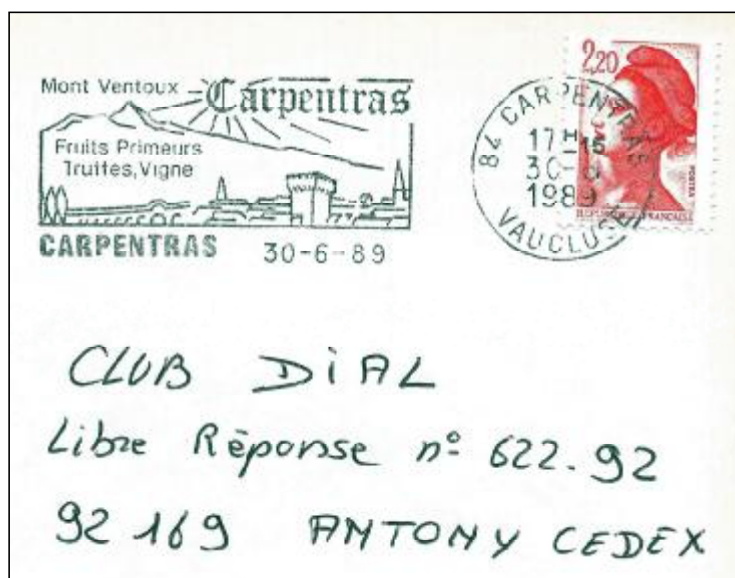 Mont Ventoux
Carpentras
Fruits Primeurs
Truites, Vigne
CARPENTRAS 30-6-89
84 CARPENTRAS
17H15
30-6
1989
VAUCLUSE
2,20
POSTES
REPUBLIQUE FRANÇAISE
CLUB DiAL
Libre Réponse n° 622.92
92169 ANTONY CEDEX